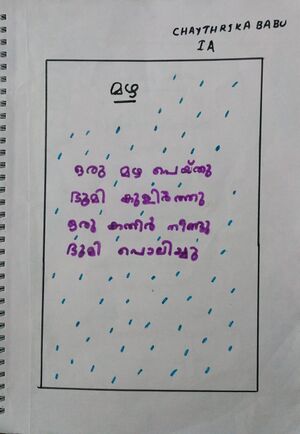 CHAYTHRIKA BABU
I A
മഴ
ഒരു മഴ പെയ്തു
ഭൂമി കുളിർത്തു
ഒരു കതിർ നീണ്ടു
ഭൂമി പൊലിച്ചു